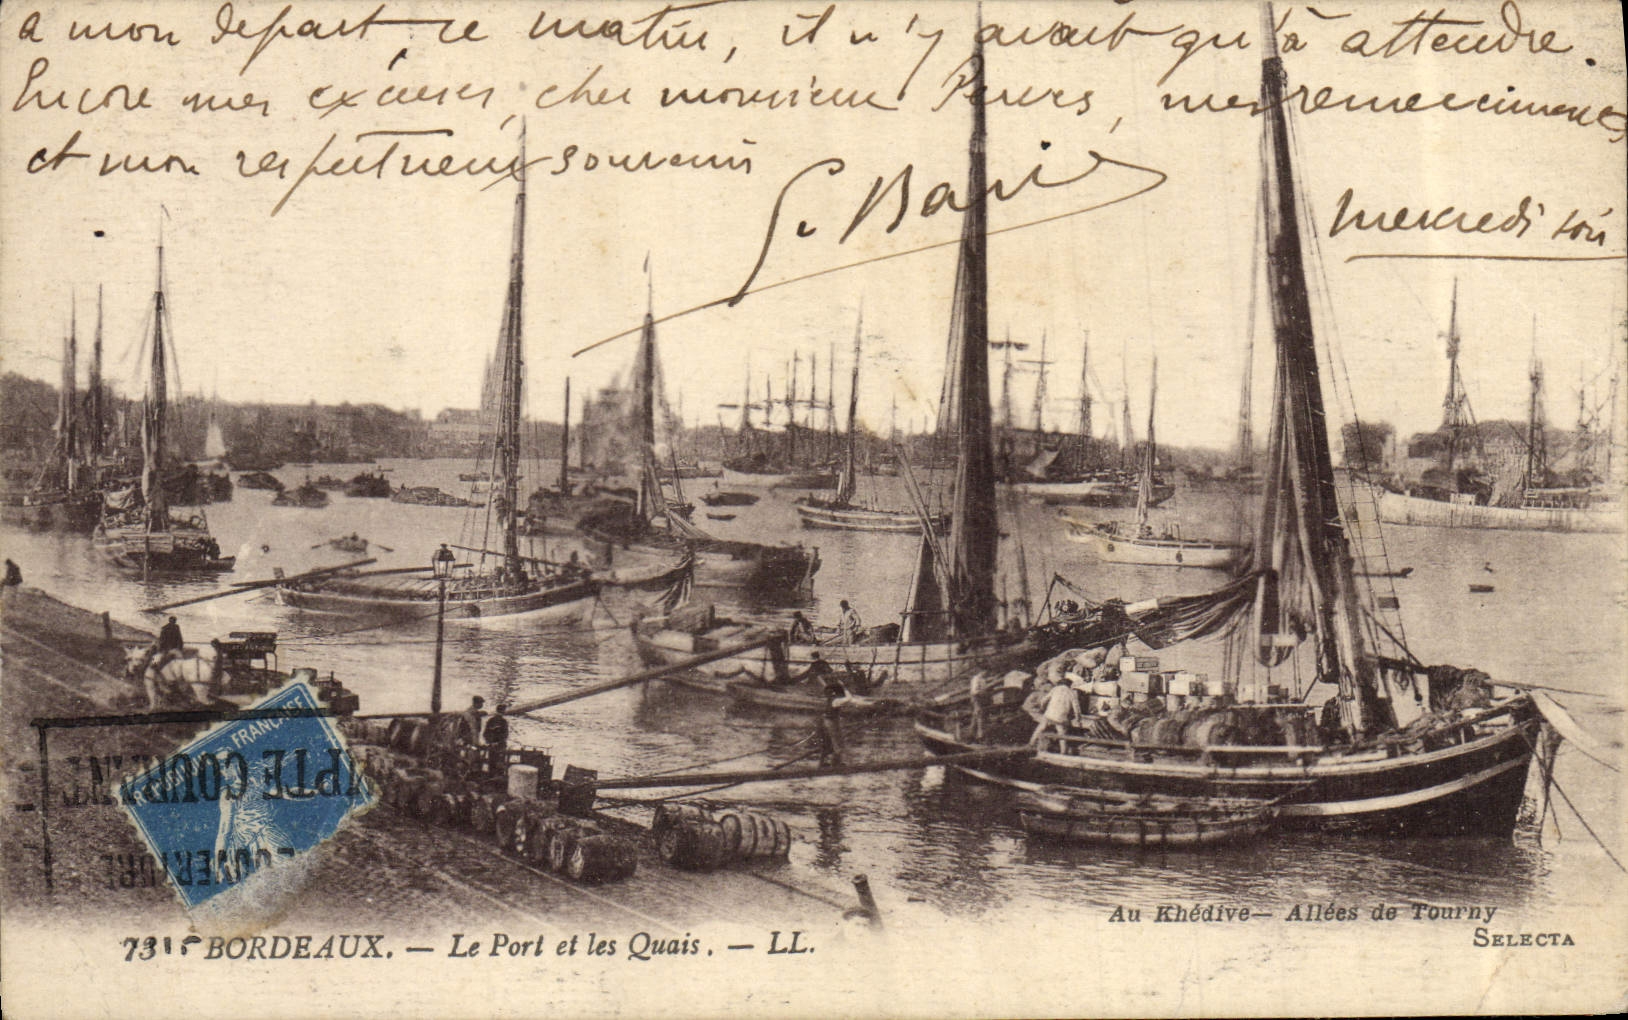 a mon départ ce matin, il n'y avait qu'à attendre.
Encore mes excuses, cher monsieur, mes remerciements
et mon respectueux souvenir
Mercredi soir
FRANÇAISE
MPTE COURANT
Au Khédive — Allées de Tourny
SELECTA
BORDEAUX. — Le Port et les Quais. — LL.